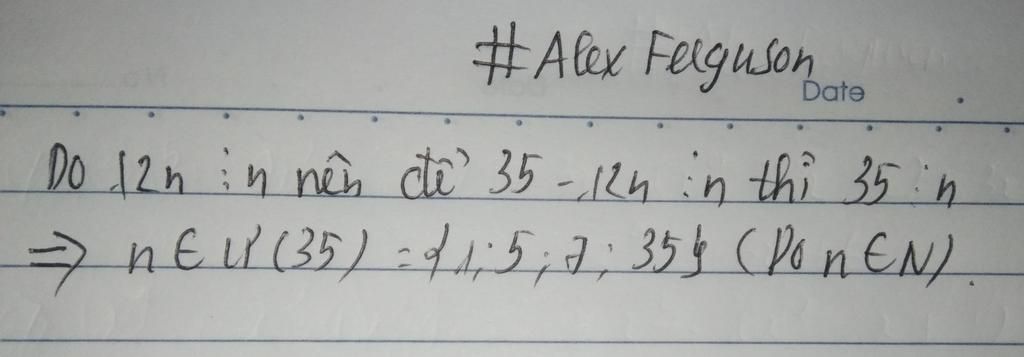 #Alex Ferguson
Date
Do 12n ⋮ n nên để 35 - 12n ⋮ n thì 35 ⋮ n
⇒ n ∈ Ư(35) = {1; 5; 7; 35} (Do n ∈ N).